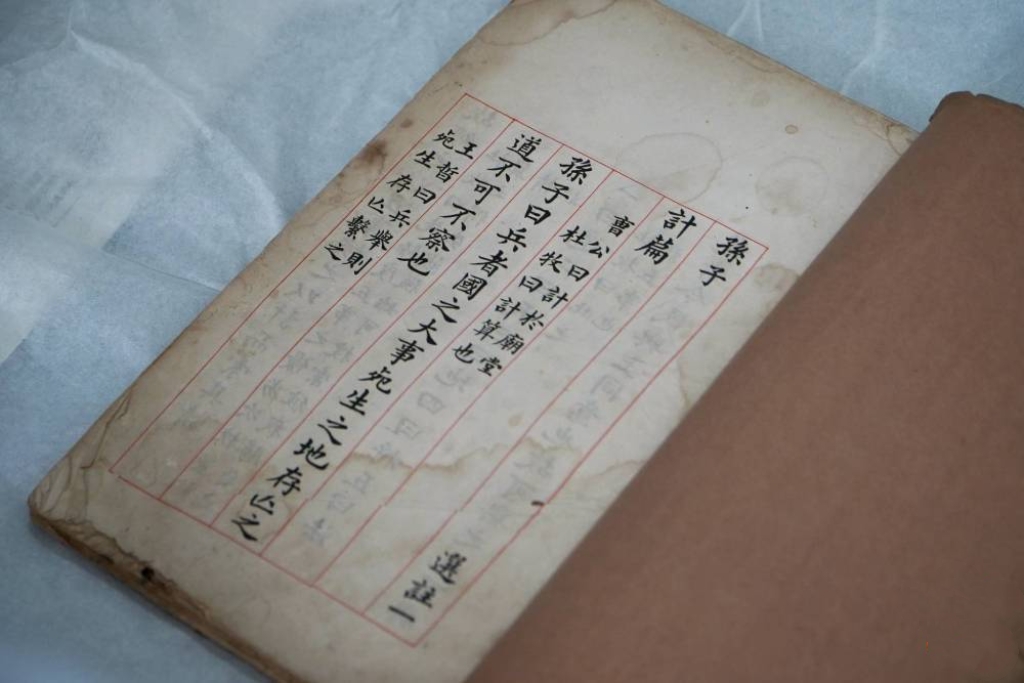 孫子 選註一
計篇
曹公曰計於廟堂
杜牧曰計算也
孫子曰兵者國之大事死生之地存亾之
道不可不察也
王哲曰兵舉則
死生存亾繫之